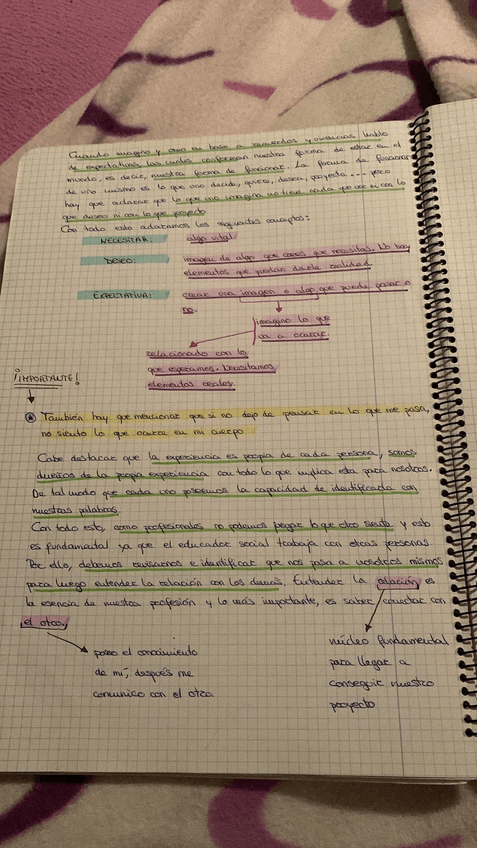 Cuando imagino y creo en base a recuerdos y vivencias hablo
de expectativas, las cuales conforman nuestra forma de estar en el
mundo, es decir, nuestra forma de funcionar. La forma de funcionar
de uno mismo es lo que uno decide, quiere, desea, proyecta... pero
hay que aclarar que lo que uno imagina no tiene nada que ver ni con lo
que deseo ni con lo que proyecto
Con todo esto aclaramos los siguientes conceptos:
NECESITAR: algo vital
DESEO: imagen de algo que crees que necesitas. No hay
elementos que puedan darle realidad.
EXPECTATIVA: crear una imagen o algo que puede pasar o
no.
imagino lo que
va a ocurrir.
relacionado con lo
que esperamos. Necesitamos
elementos reales.
¡IMPORTANTE!
También hay que mencionar que si no dejo de pensar en lo que me pasa,
no siento lo que ocurre en mi cuerpo
Cabe destacar que la experiencia es propia de cada persona, somos
dueños de la propia experiencia con todo lo que implica esta para nosotros.
De tal modo que cada uno poseemos la capacidad de identificarla con
nuestras palabras.
Con todo esto, como profesionales no podemos negar lo que otro siente y esto
es fundamental ya que el educador social trabaja con otras personas
Por ello, debemos revisarnos e identificar que nos pasa a nosotros mismos
para luego entender la relación con los demás. Entender la relación es
la esencia de nuestra profesión y lo más importante, es saber conectar con
el otro.
poseo el conocimiento
de mí, después me
comunico con el otro.
núcleo fundamental
para llegar a
conseguir nuestro
proyecto